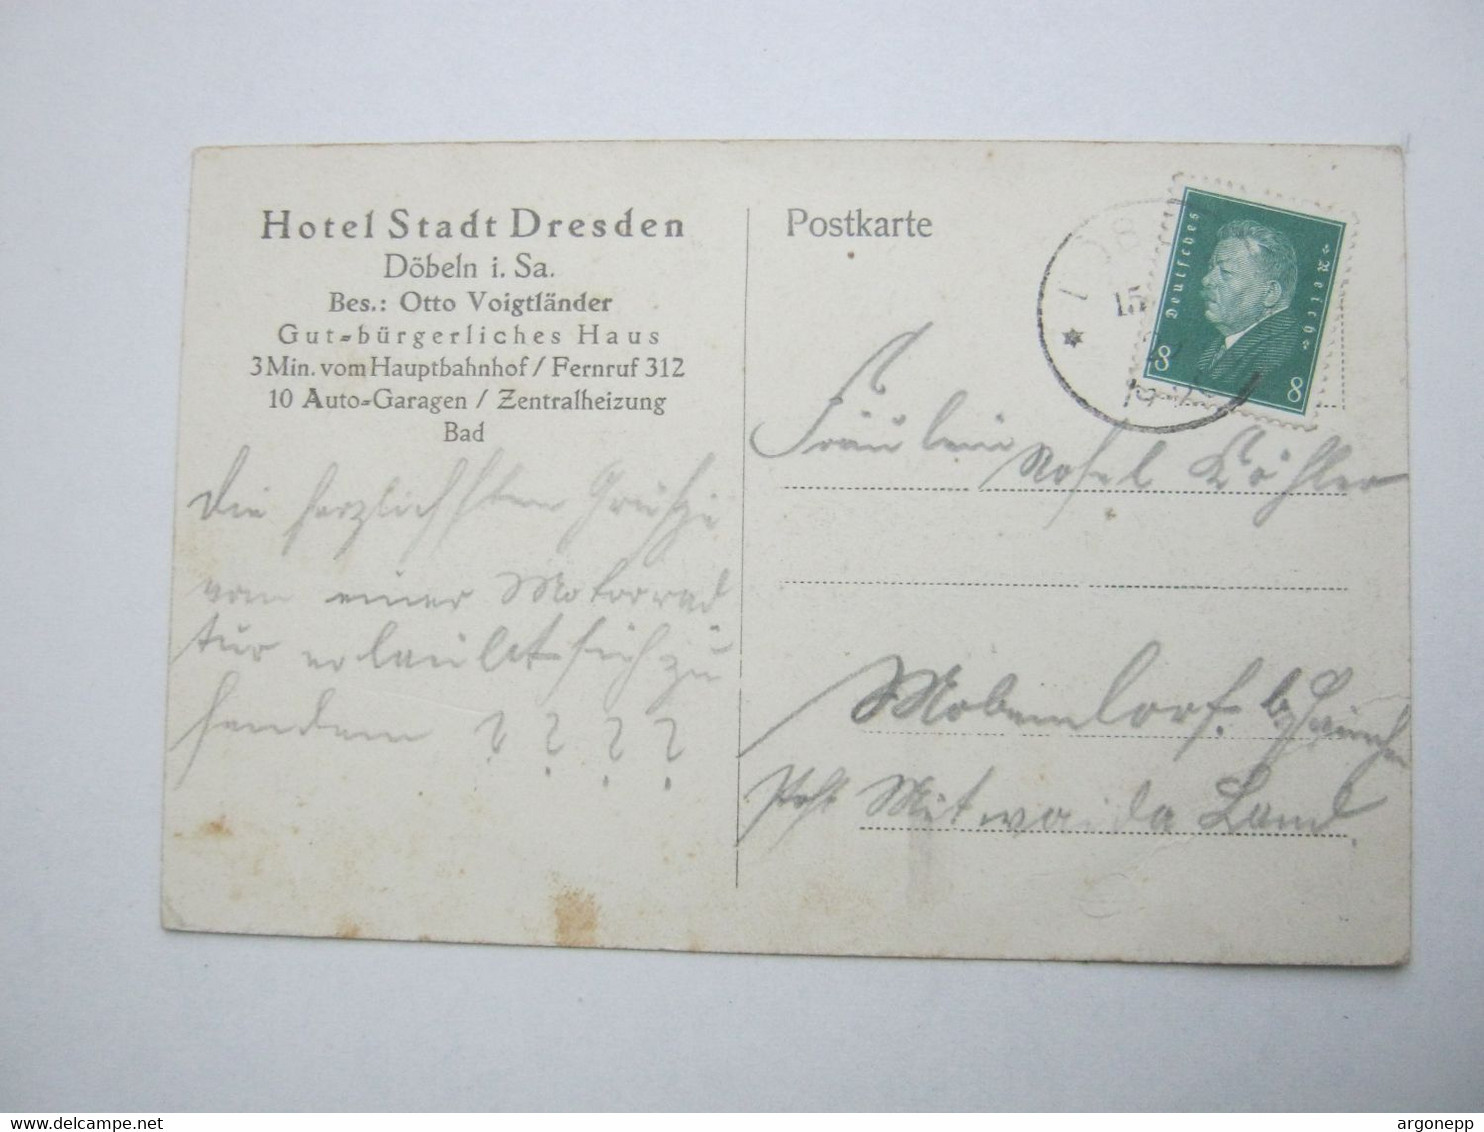 Hotel Stadt Dresden
Döbeln i. Sa.
Bes.: Otto Voigtländer
Gut-bürgerliches Haus
3 Min. vom Hauptbahnhof / Fernruf 312
10 Auto-Garagen / Zentralheizung
Bad
Die herzlichsten Grüße
von einer Motorrad
tur erlaubt sich zu
senden ? ? ? ?
Postkarte
15
Deutsches Reich
8 8
Fräulein
Köhler
Mobendorf b. Hainichen
Post Mitwaida Land
www.delcampe.net
argonepp